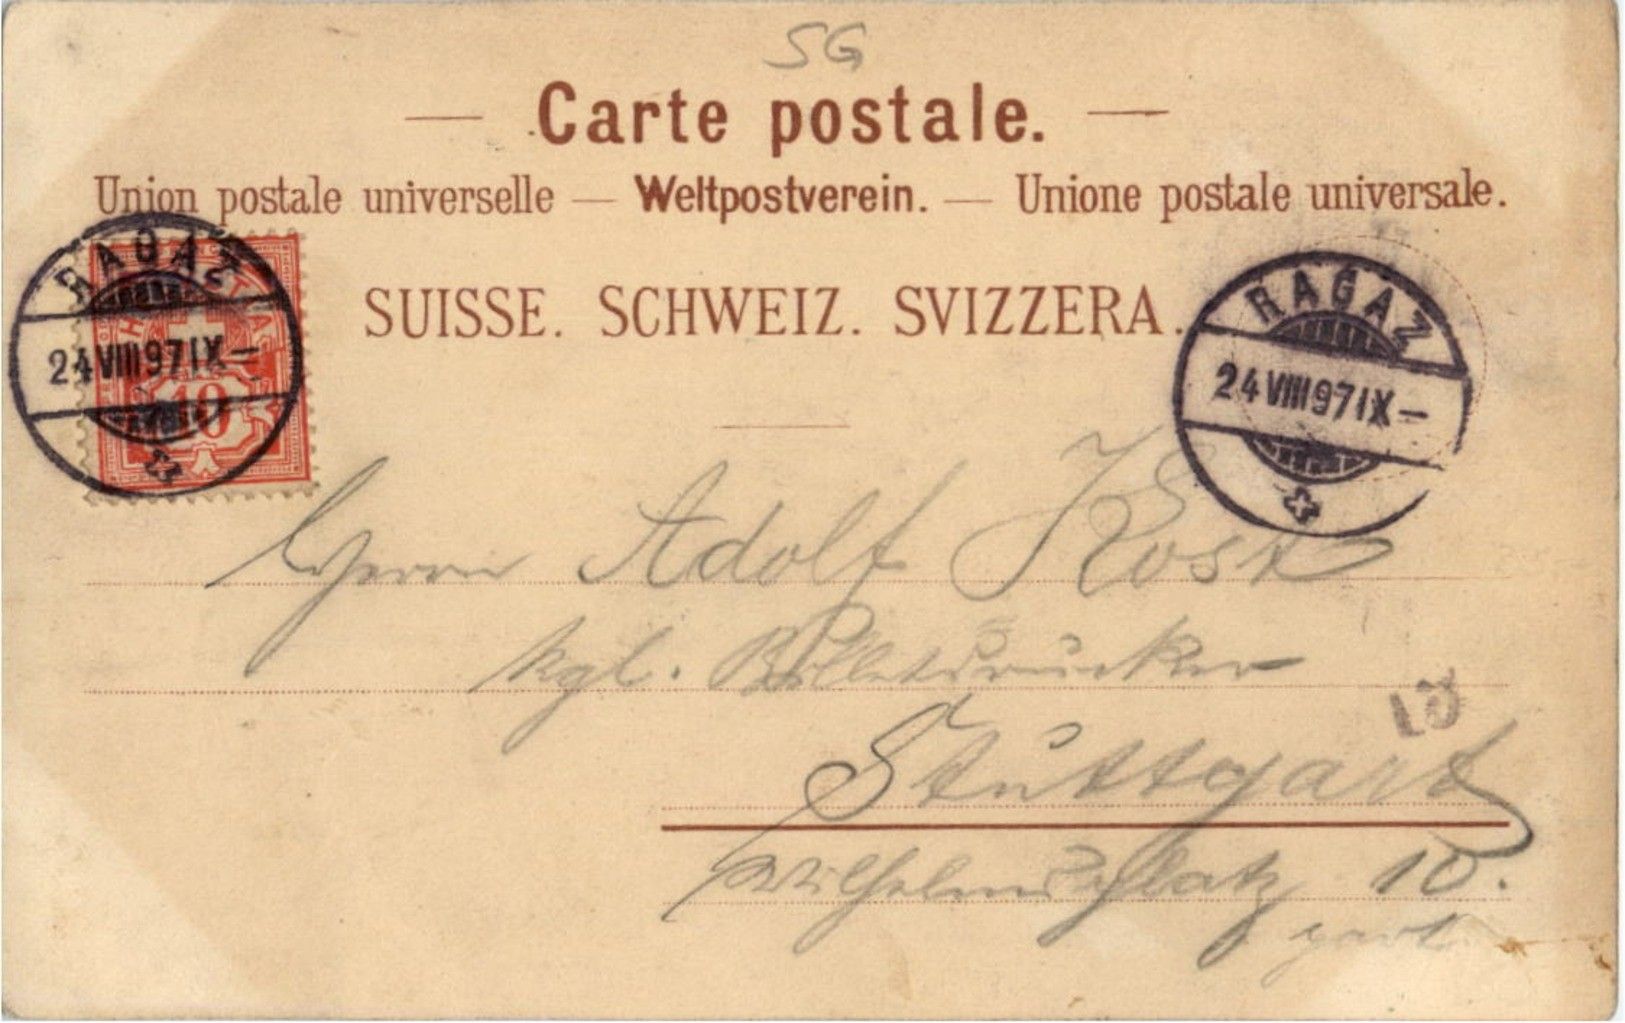 SG
Carte postale.
Union postale universelle — Weltpostverein. — Unione postale universale.
SUISSE. SCHWEIZ. SVIZZERA.
RAGAZ
24 VIII 97 IX –
10
RAGAZ
24 VIII 97 IX –
Herrn Adolf Kost
kgl. Billetdrucker
Stuttgart
Wilhelmsplatz 10.